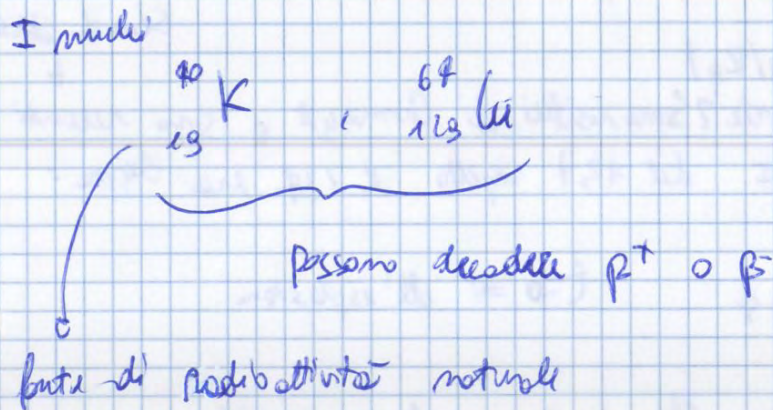 I nuclei
⁴⁰₁₉K , ⁶⁴₁₂₉Cu
possono decadere β⁺ o β⁻
fonte di radioattività naturale